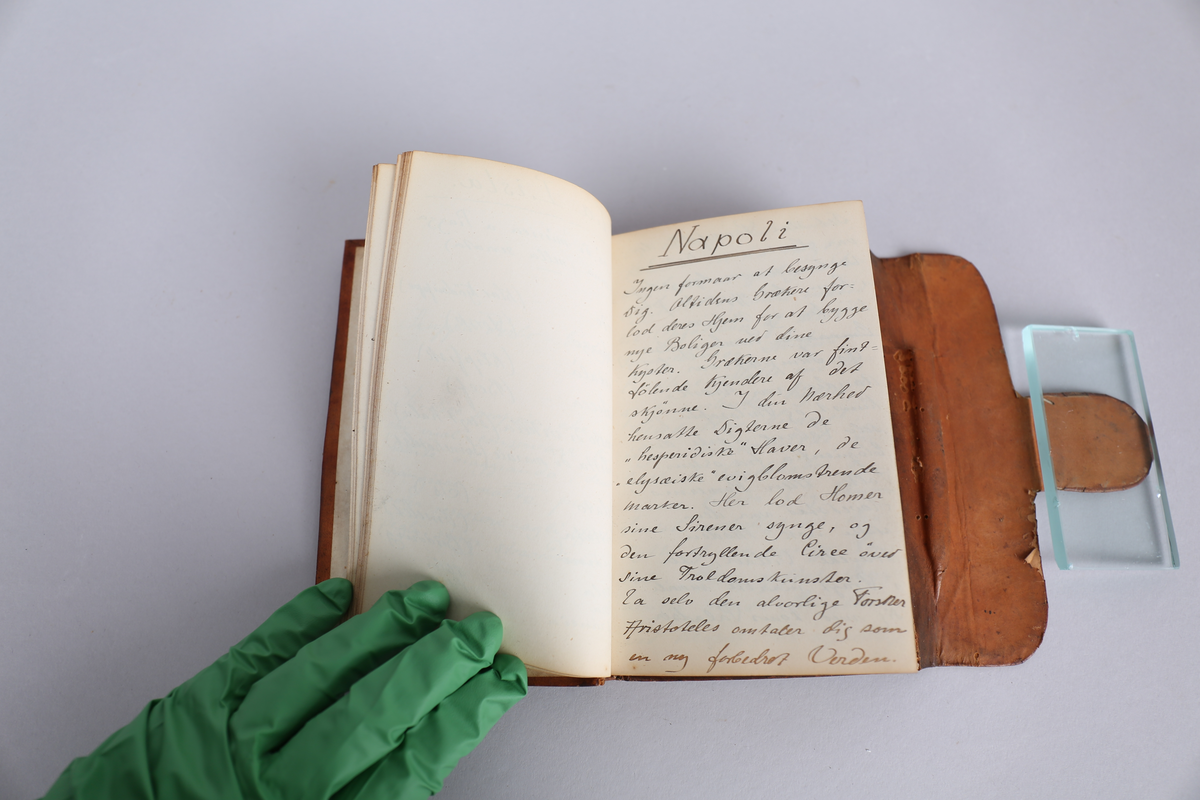 Napoli
Ingen formaar at besynge
Dig. Oltidens Grækere for=
lod deres Hjem for at bygge
nye Boliger ved dine
Kyster. Grækerne var fint=
følende Kjendere af det
skjønne. I din Nærhed
hensatte Digterne de
„hesperidiske" Haver, de
„elysæiske" evigblomstrende
Marker. Her lod Homer
sine Sirener synge, og
den fortryllende Circe öved
sine Troldomskunster.
Ia selv den alvorlige Forsker
Aristoteles omtaler Dig som
en ny forbedret Verden.